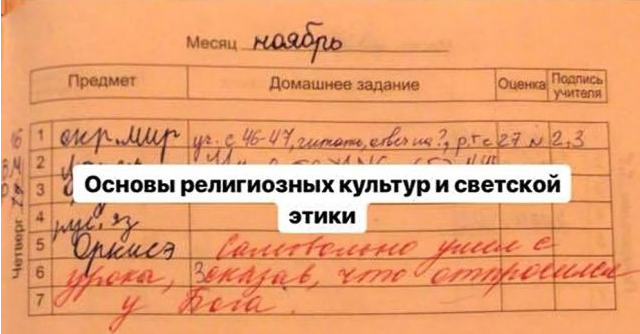 Месяц ноябрь
Предмет Домашнее задание Оценка Подпись учителя
1 окр. мир уч. с 46-47, читать, отвеч на ?, р.т с 27 № 2,3
2
3
Основы религиозных культур и светской
этики
4 рус. яз
Четверг
5 Орксэ Самовольно ушел с
6 урока, сказав, что отпросился
7 у Бога.